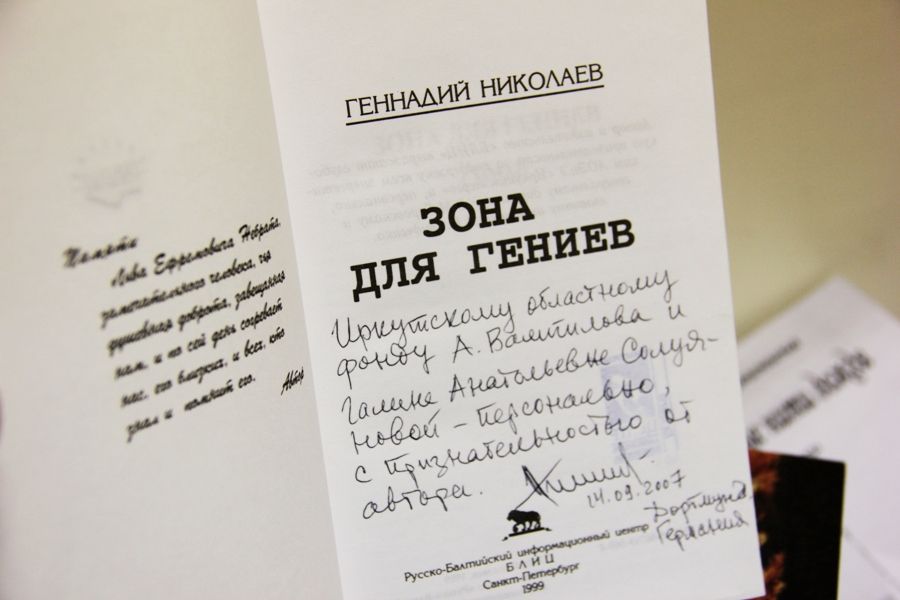 Памяти
Льва Ефремовича Неврата,
замечательного человека, чья
душевная доброта, завещанная
нам, и по сей день согревает
нас, его близких, и всех, кто
знал и помнит его.
Автор
ГЕННАДИЙ НИКОЛАЕВ
ЗОНА
ДЛЯ ГЕНИЕВ
Иркутскому областному
фонду А. Вампилова и
Галине Анатольевне Солуя-
новой – персонально,
с признательностью от
автора.
14.09.2007
Дортмунд,
Германия
Русско-Балтийский информационный центр
БЛИЦ
Санкт-Петербург
1999